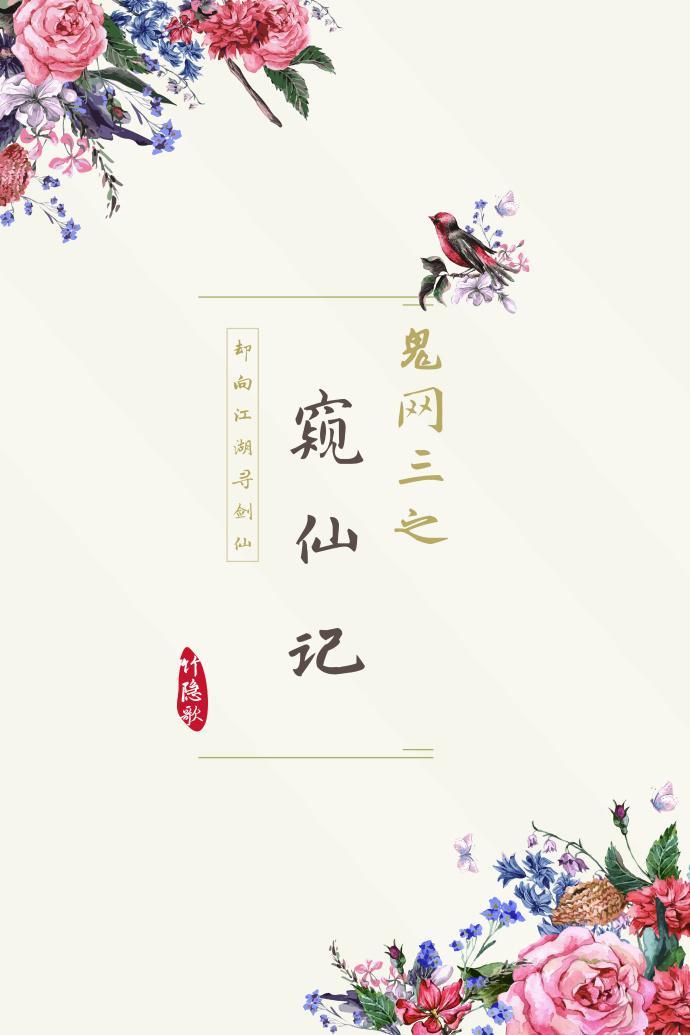 鬼网三之
窥仙记
却向江湖寻剑仙
竹隐歌